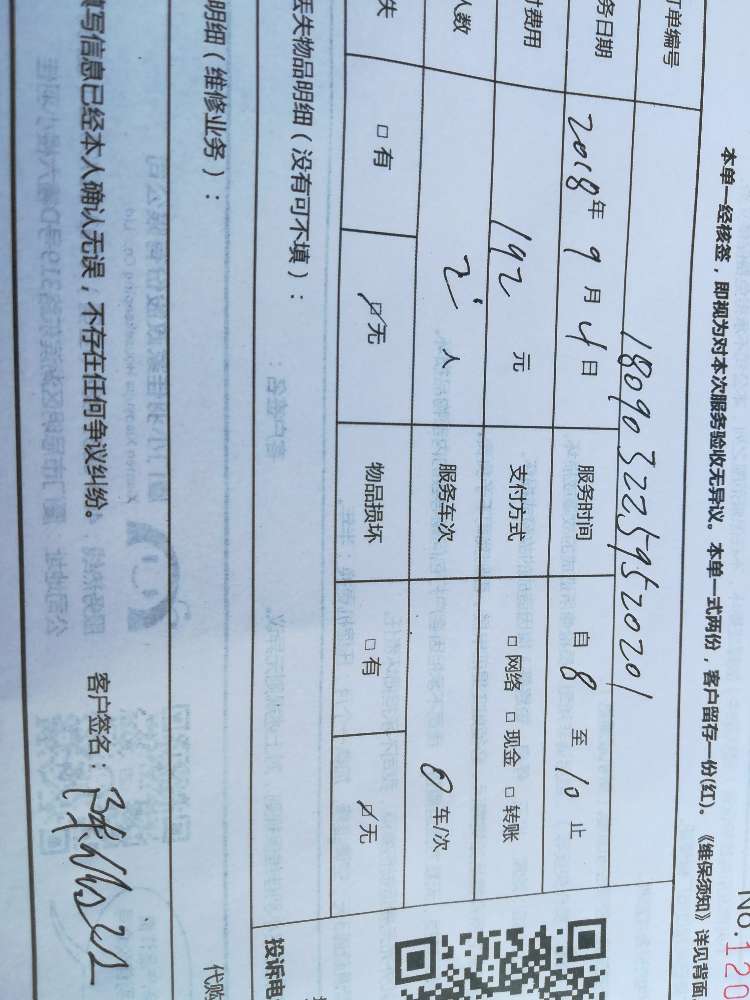 No:120
本单一经核签，即视为对本次服务验收无异议。本单一式两份，客户留存一份(红)。《维保须知》详见背面
订单编号 1809032259520201
务日期 2018年9月4日 服务时间 自8至10止
付费用 192元 支付方式 □网络 □现金 □转账
人数 2人 服务车次 0车/次
失 □有 ☑无 物品损坏 □有 ☑无
丢失物品明细（没有可不填）：
投诉电
明细（维修业务）：
代购
填写信息已经本人确认无误，不存在任何争议纠纷。 客户签名：